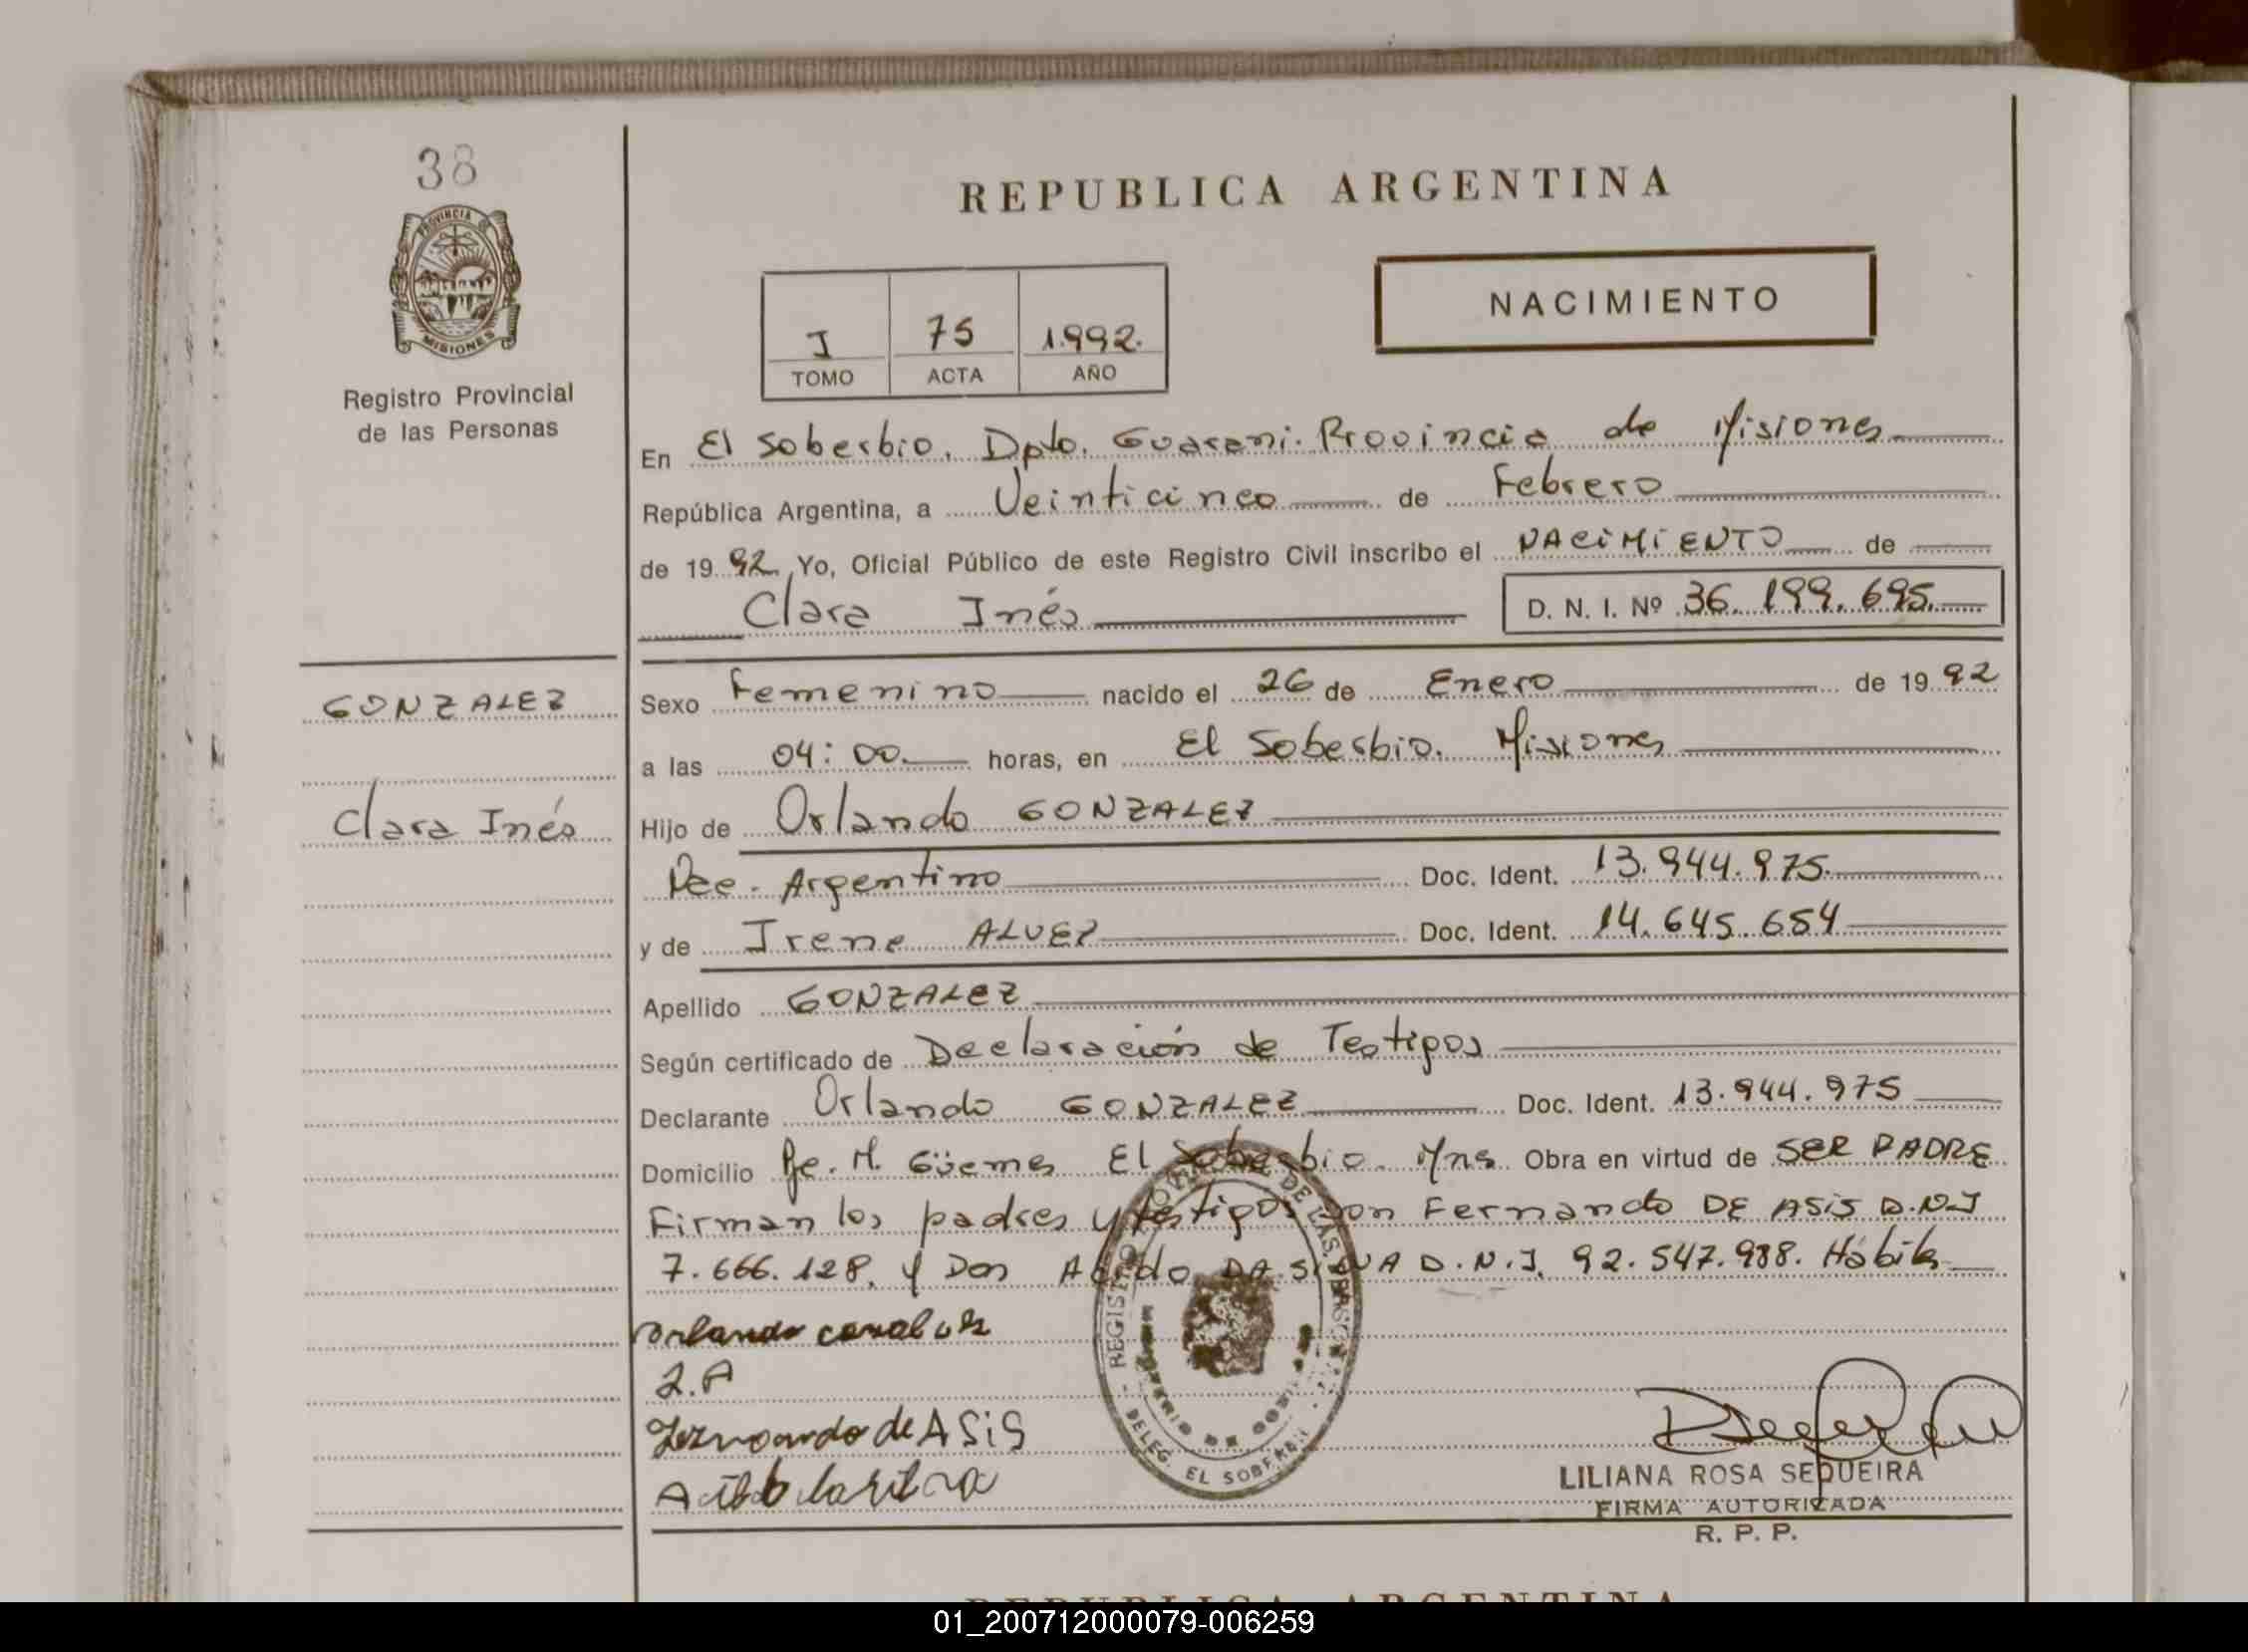 38
PROVINCIA DE
MISIONES
Registro Provincial
de las Personas
REPUBLICA ARGENTINA
NACIMIENTO
I 75 1.992.
TOMO ACTA AÑO
En El Soberbio. Dpto. Guarani. Provincia de Misiones
República Argentina, a Veinticinco de Febrero
de 1992 Yo, Oficial Público de este Registro Civil inscribo el NACIMIENTO de
Clara Inés D. N. I. Nº 36.199.695.
GONZALEZ
Clara Inés
Sexo Femenino nacido el 26 de Enero de 1992
a las 04:00. horas, en El Soberbio. Misiones
Hijo de Orlando GONZALEZ
Argentino Doc. Ident. 13.944.975.
y de Irene ALVEZ Doc. Ident. 14.645.654
Apellido GONZALEZ
Según certificado de Declaración de Testigos
Declarante Orlando GONZALEZ Doc. Ident. 13.944.975
Domicilio Pje. M. Güemes El Soberbio. Mns. Obra en virtud de SER PADRE
Firman los padres y testigos Don Fernando DE ASiS D.N.I
7.666.128. y Don DA SILVA D.N.I. 92.547.988. Hábiles
Orlando
I.A
Fernando de ASiS
REGISTRO DE LAS PERSONAS
DELEG. EL SOBERBIO
LILIANA ROSA SEQUEIRA
FIRMA AUTORIZADA
R. P. P.
REPUBLICA ARGENTINA
01_200712000079-006259